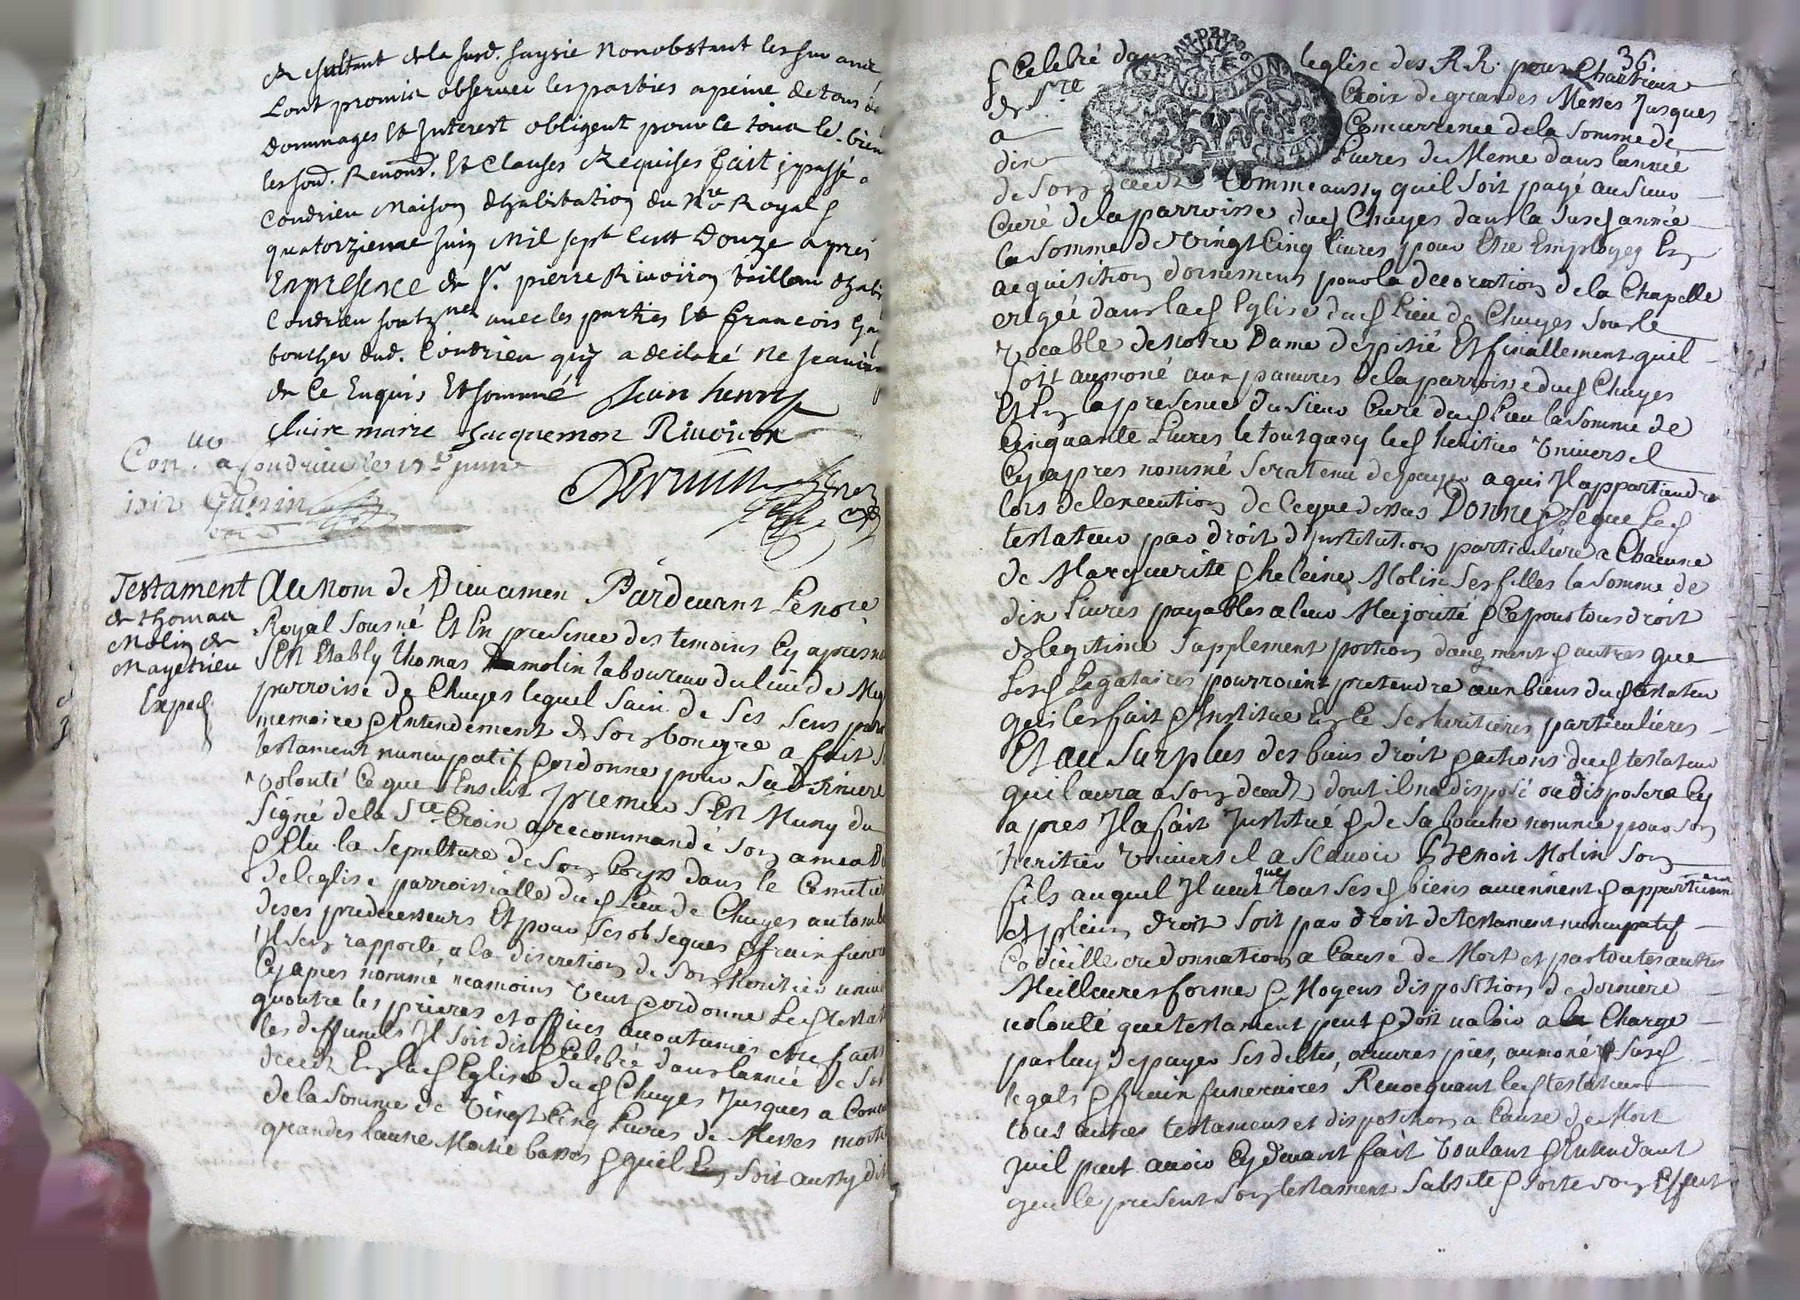 Resultant de la susd. saysie nonobstant les sus
Lont promis observer les parties a peine de tous
dommages Et Interest obligent pour ce tous les biens
les soud. Renond. Et Clauses Requises fait & passé a
Condrieu Maison d'habitation du Nre Royal &
quatorzieme Juin Mil sept Cent Douze apres
En presence de Sr. pierre Rivoiron
Condrieu avec les parties Et françois
boucher dud. Condrieu quy a declaré ne scavoir
de ce Enquis Et sommé Jean henry
Claire marie Jacquemon Rivoiron
Con. a Condrieu le juin
1712 Guerin
Testament
de thomas
Molin de
Mayetrieu
Exped
Au Nom de Dieu amen Pardevant Le nore
Royal sousné Et En presence des temoins Cy apres
S'En Etably thomas molin laboureur du lieu de
parroisse de Chuyes lequel sain de ses sens
memoire & Entendement de son bon gre a fait
testament nuncupatif & ordonne pour sa derniere
volonté Ce que s'Ensuit premier s'En Muny du
signe de la Ste Croix a recommandé son ame a
& Elu la sepulture de son Corps dans le Cemetier
de leglise parroissialle dud Lieu de Chuyes au tombe
de ses predecesseurs Et pour ses obseques & frais
Il s'en rapporte a la discretion de son heritier
Cy apres nommé neamoins veut & ordonne Led
quoutre les prieres et offices accoutumés Etre faits
les deffunts Il soit dit & Celebré dans lannée de
deced En lad Eglise dud Chuyes Jusques a
de la somme de vingt Cinq Livres de Messes
grandes lautre Moitie basses & quil soit aussy dit
36
& Celebré dans leglise des R R. peres Chartreux
de Ste Croix de grandes Messes Jusques
a Concurrence de la somme de
dix Livres de Meme dans lannée
de son deced Comme aussy quil soit payé au sieur
Curé de la parroisse dud Chuyes dans la susd année
la somme de vingt Cinq livres pour Etre Employez En
acquisition d'ornemens pour la decoration de la Chapelle
erigée dans lad Eglise dud Lieu de Chuyes sous le
vocable de notre Dame de pitié Et finallement quil
soit aumoné aux pauvres de la parroisse dud Chuyes
Et En la presence du sieur Curé dud Lieu la somme de
Cinquante Livres le tout quoy led heritier Universel
Cy apres nommé sera tenu de payer a qui Il appartiendra
lors de l'execution de Ce que dessus Donne & Legue Led
testateur par droit d'Institution particuliere a Chacune
de Marguerite & heleine Molin ses filles la somme de
dix Livres payables a leur Majorité & Ce pour tous droit
de legitime supplement portion d'augment & autres que
Lesd Legataires pourroient pretendre aux biens dud testateur
qui les fait & Institue En Ce ses heritieres particulieres
Et au Surplus des biens droit & actions dud testateur
qu'il aura a son deced dont il n'a disposé ou disposera Cy
apres Il a fait Institué & de sa bouche nommé pour son
heritier Universel a Scavoir Benoit Molin son
fils auquel Il veut que tous ses biens aviennent & appartiennent
et plein droit soit par droit de testament nuncupatif
Codicille ou donnation a Cause de Mort et par toutes autres
Meilleures formes & Moyens disposition de derniere
volonté que testament peut & doit valoir a la Charge
par luy de payer ses dettes, œuvres pies, aumones susd
legats & frais funeraires, Revocquant led testateur
tous autres testamens et disposition a Cause de Mort
quil peut avoir Cy devant fait Voulant & Entendant
que le present son testament subsiste & sorte son Effect